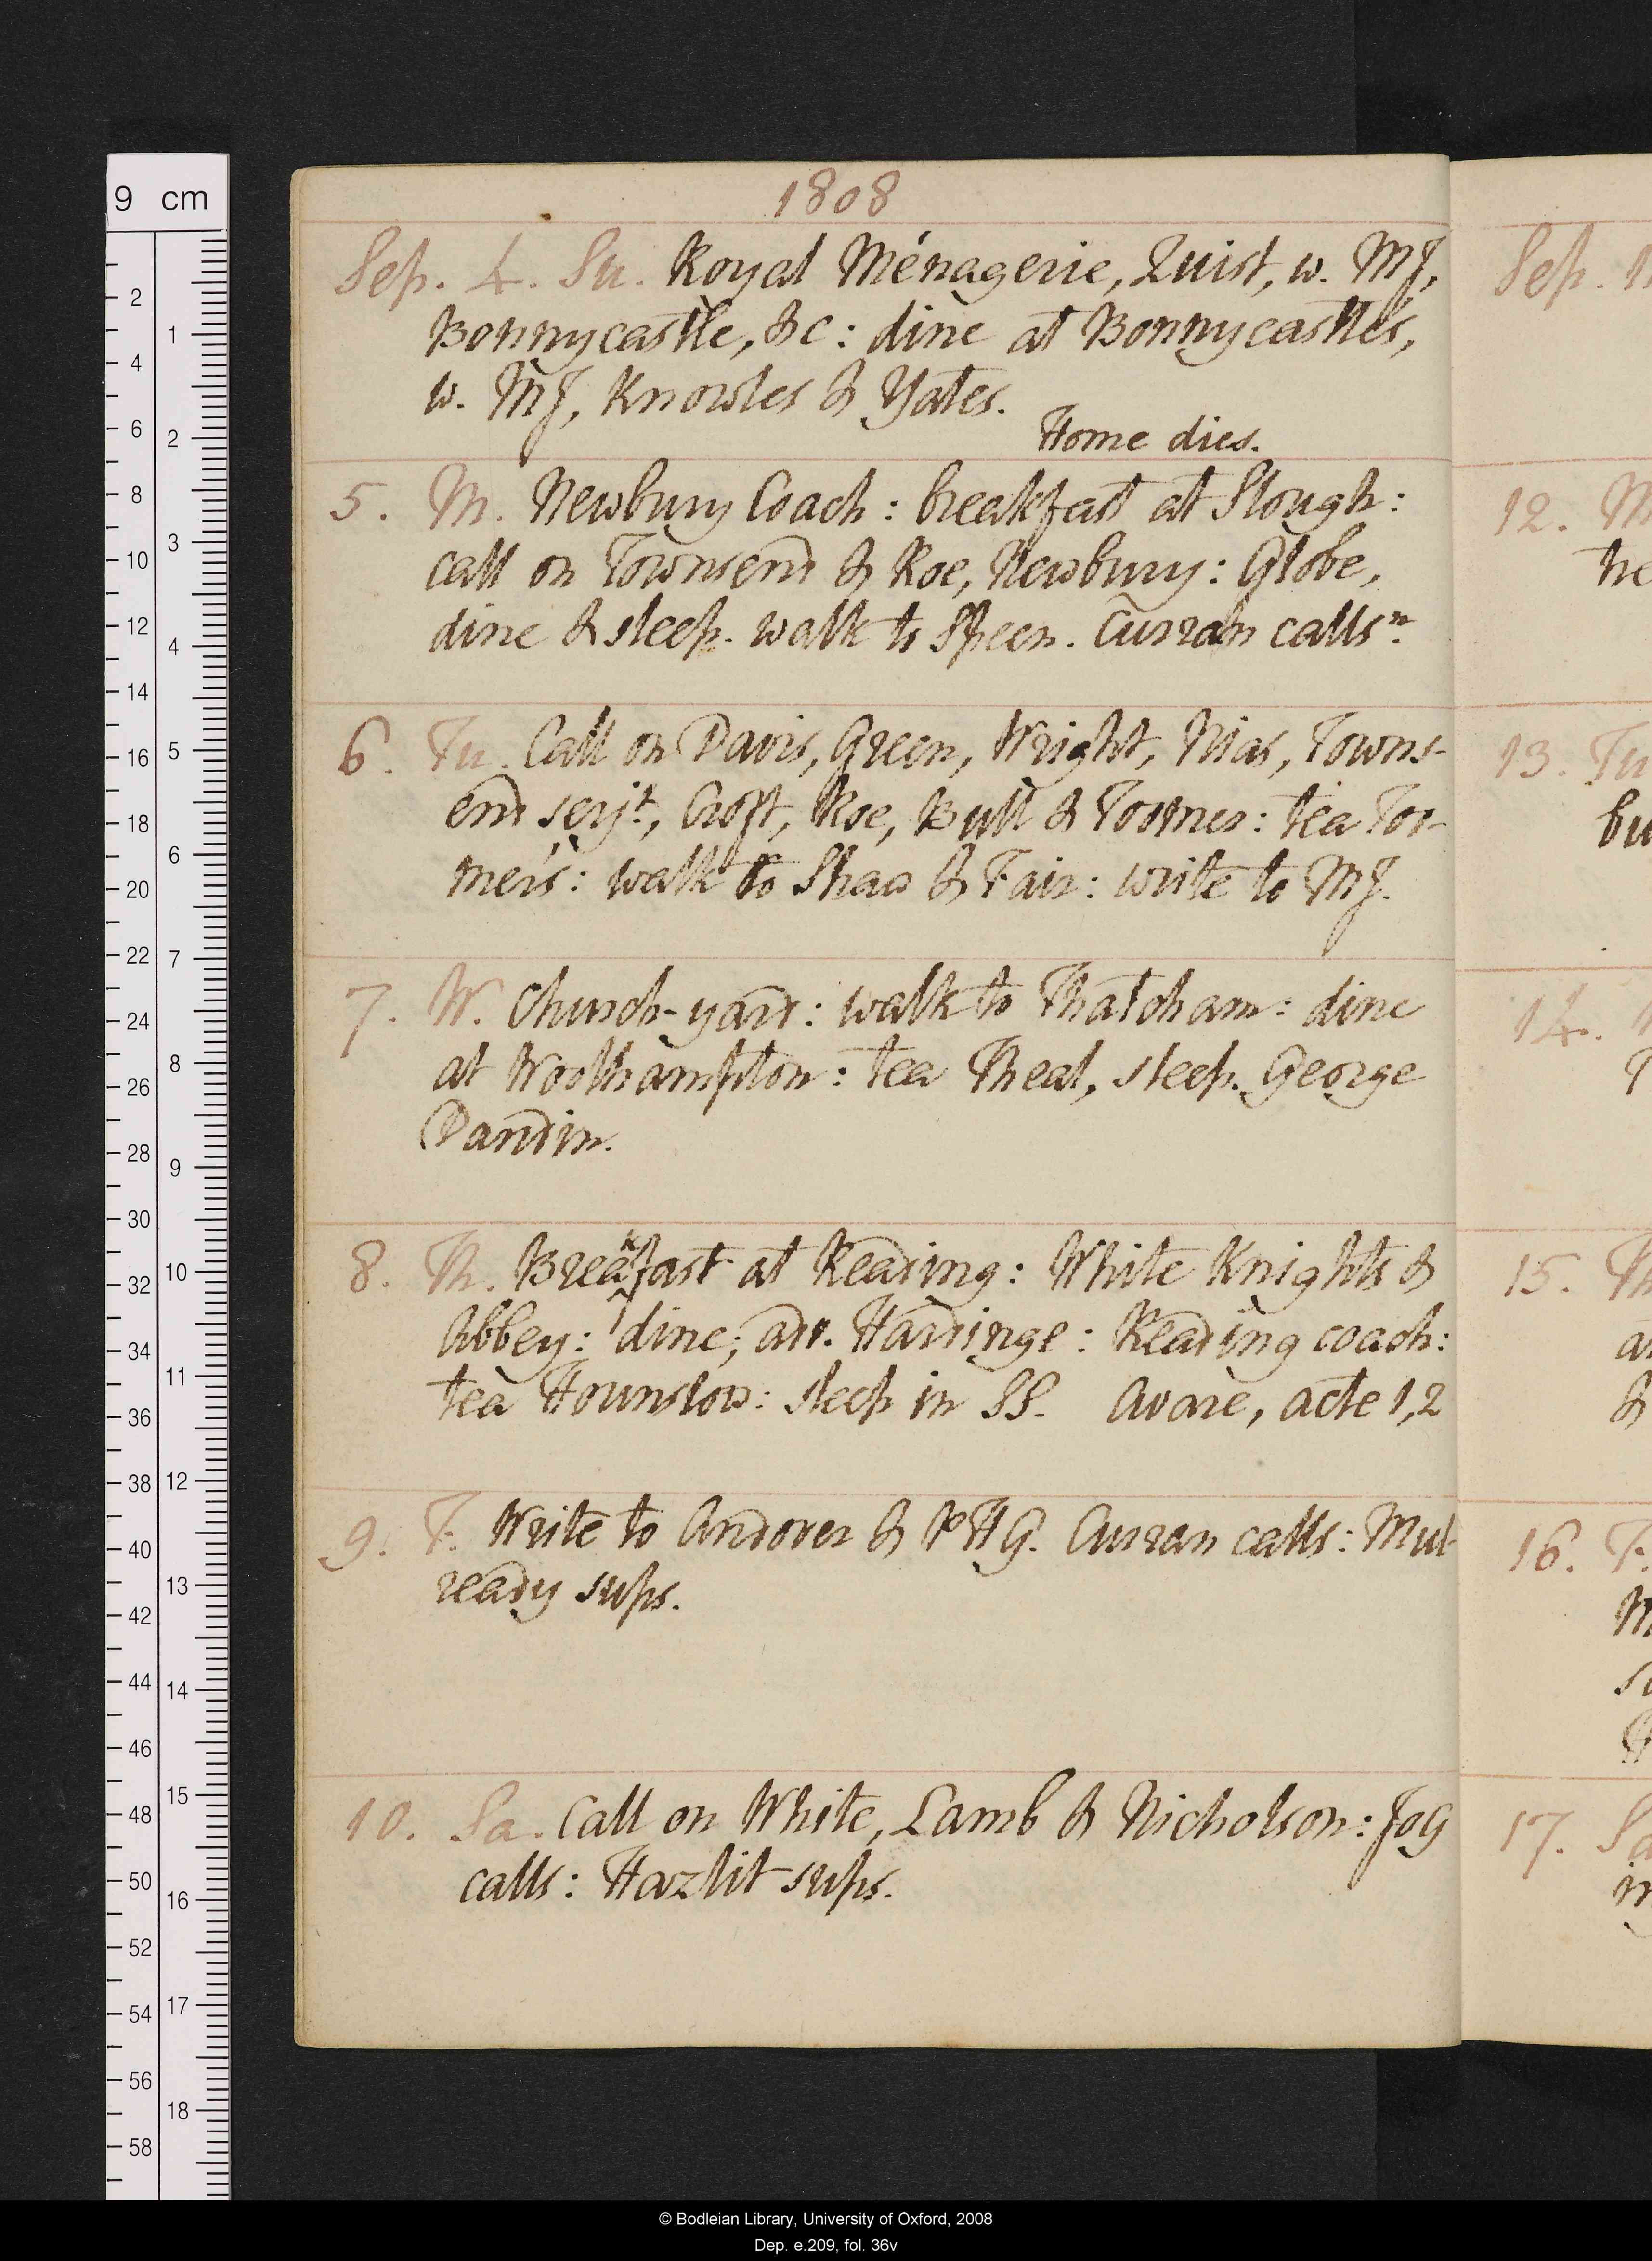 1808
Sep. 4. Su. Royal Ménagerie, Quist, w. MJ,
Bonnycastle, &c: dine at Bonnycastle's,
w. MJ, Knowles & Yates.
Home dies.
5. M. Newbury Coach: breakfast at Slough:
call on Townsend & Roe, Newbury: Globe,
dine & sleep. walk to Speen. Curran calls n.
6. Tu. Call on Davis, Green, Wright, Nias, Towns-
end serjt, Croft, Roe, Bull & Toomer: tea Too-
mer's: walk to Shaw & Fair: write to MJ.
7. W. Church-yard: walk to Thatcham: dine
at Woolhampton: tea Theal, sleep. George
Dandin.
8. Th. Breakfast at Reading: White Knights &
Abbey: dine; adv. Hardinge: Reading coach:
tea Hounslow: sleep in SS. Avare, acte 1,2
9. F. Write to Andover & PHG. Curran calls: Mul-
ready sups.
10. Sa. Call on White, Lamb & Nicholson: JoG
calls: Hazlit sups.
Sep. 11
12. M
he
13. Tu
bu
14.
15. Th
&
16. F.
17. Sa
in
9 cm
2
4
6
8
10
12
14
16
18
20
22
24
26
28
30
32
34
36
38
40
42
44
46
48
50
52
54
56
58
1
2
3
4
5
6
7
8
9
10
11
12
13
14
15
16
17
18
© Bodleian Library, University of Oxford, 2008
Dep. e.209, fol. 36v